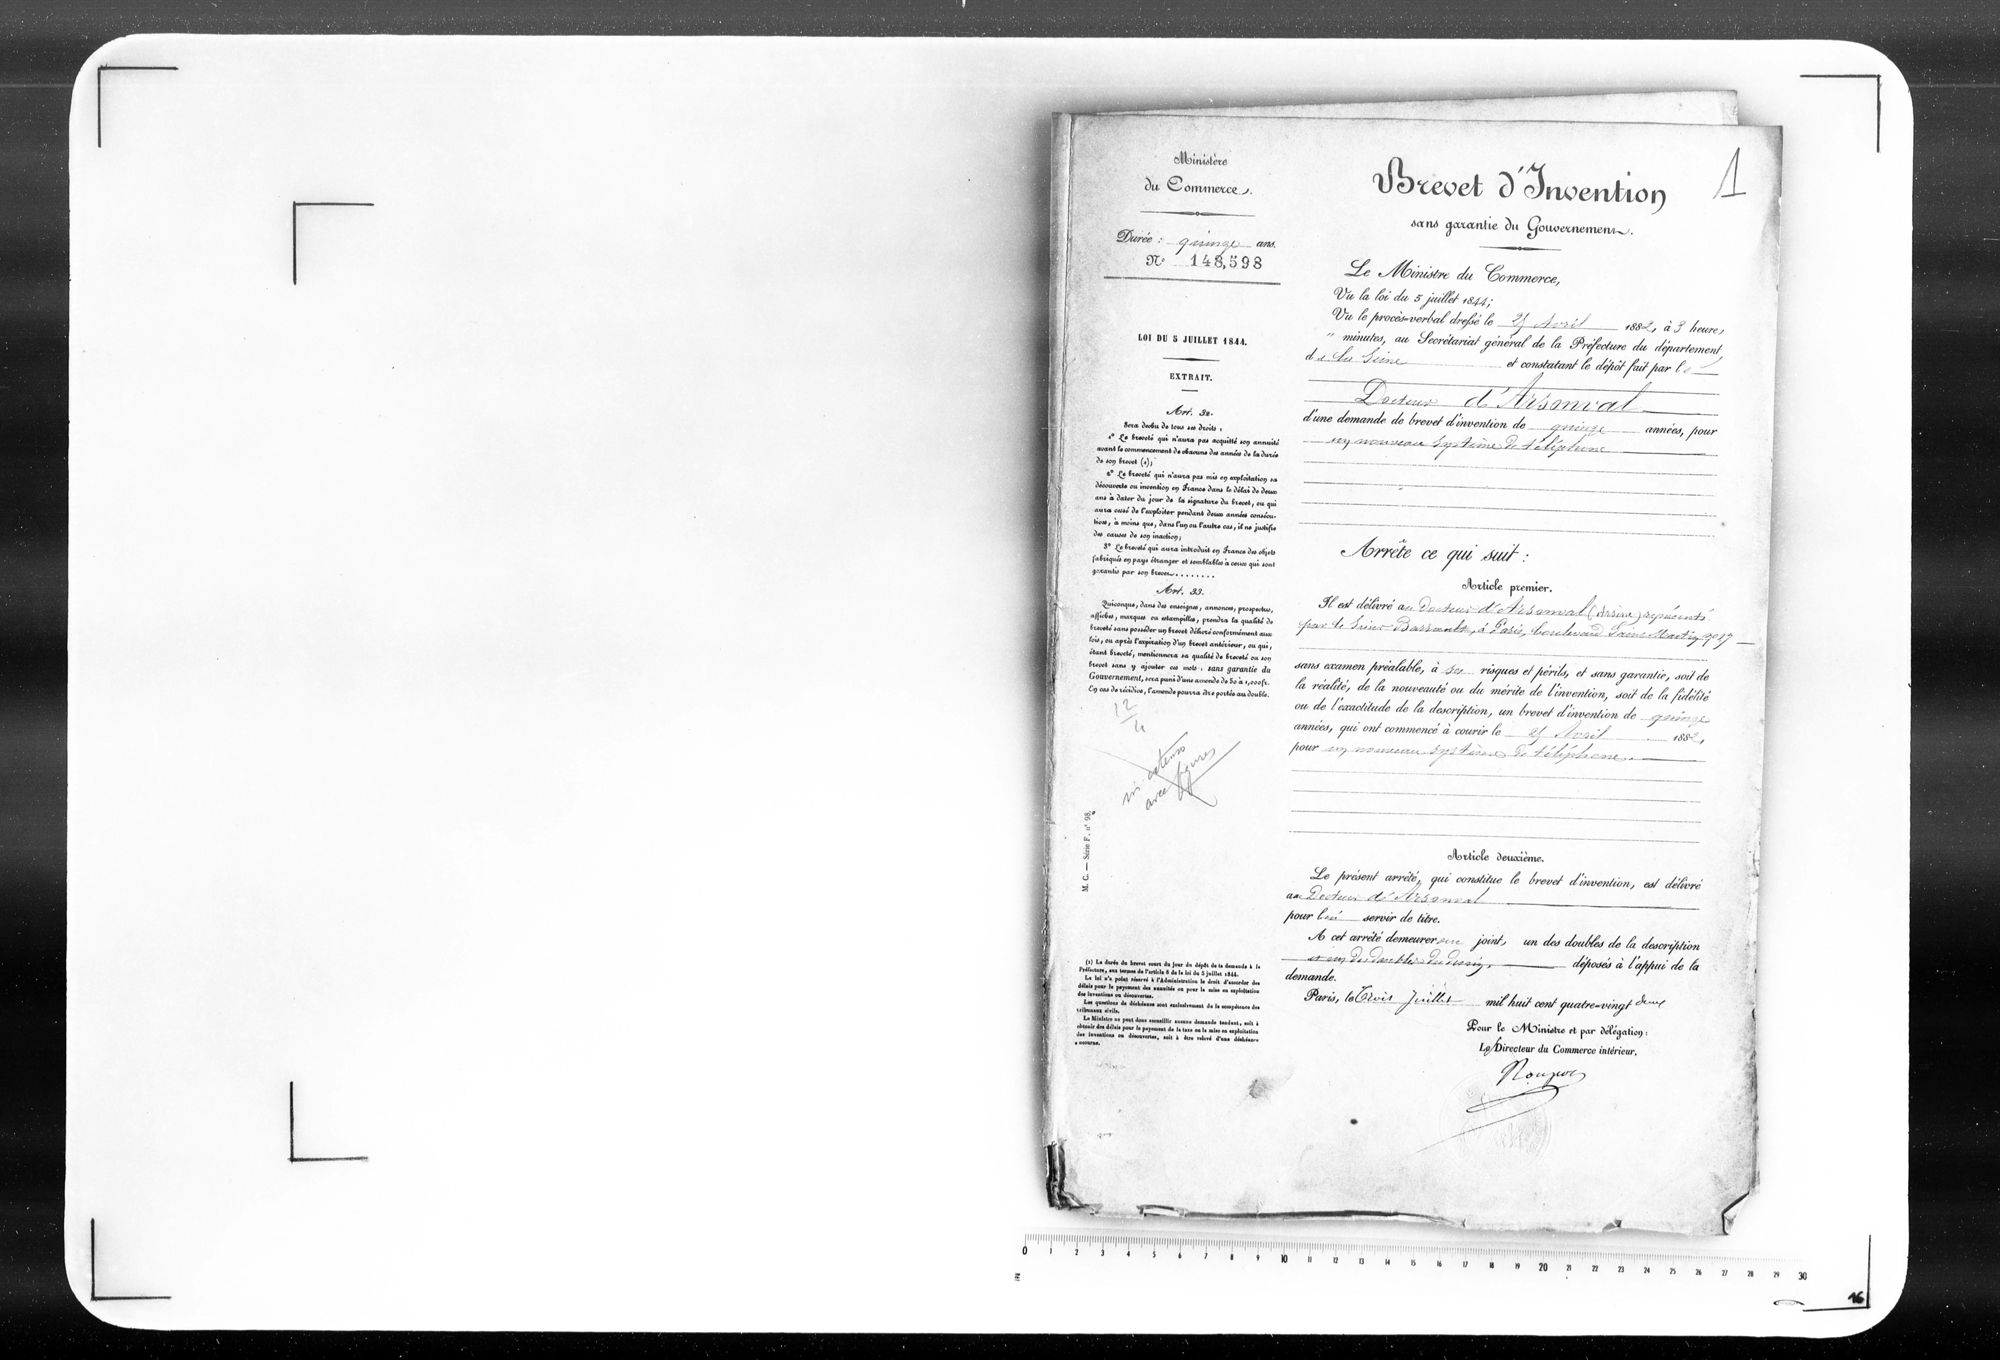 Ministère
du Commerce.
Durée : quinze ans.
N° 148,598
LOI DU 5 JUILLET 1844.
EXTRAIT.
Art. 32.
Sera déchu de tous ses droits :
1° Le breveté qui n'aura pas acquitté son annuité
avant le commencement de chacune des années de la durée
de son brevet (1);
2° Le breveté qui n'aura pas mis en exploitation sa
découverte ou invention en France dans le délai de deux
ans à dater du jour de la signature du brevet, ou qui
aura cessé de l'exploiter pendant deux années consécu-
tives, à moins que, dans l'un ou l'autre cas, il ne justifie
des causes de son inaction;
3° Le breveté qui aura introduit en France des objets
fabriqués en pays étranger et semblables à ceux qui sont
garantis par son brevet........
Art. 33.
Quiconque, dans des enseignes, annonces, prospectus,
affiches, marques ou estampilles, prendra la qualité de
breveté sans posséder un brevet délivré conformément aux
lois, ou après l'expiration d'un brevet antérieur, ou qui,
étant breveté, mentionnera sa qualité de breveté ou son
brevet sans y ajouter ces mots : sans garantie du
Gouvernement, sera puni d'une amende de 50 à 1,000 fr.
En cas de récidive, l'amende pourra être portée au double.
12
in extenso
avec figures
M. C. — Série F. n° 98.
(1) La durée du brevet court du jour du dépôt de la demande à la
Préfecture, aux termes de l'article 8 de la loi du 5 juillet 1844.
La loi n'a point réservé à l'Administration le droit d'accorder des
délais pour le payement des annuités ou pour la mise en exploitation
des inventions ou découvertes.
Les questions de déchéance sont exclusivement de la compétence des
tribunaux civils.
Le Ministre ne peut donc accueillir aucune demande tendant, soit à
obtenir des délais pour le payement de la taxe ou la mise en exploitation
des inventions ou découvertes, soit à être relevé d'une déchéance
encourue.
1
Brevet d'Invention
sans garantie du Gouvernement.
Le Ministre du Commerce,
Vu la loi du 5 juillet 1844;
Vu le procès-verbal dressé le 25 Avril 1882, à 3 heures
" minutes, au Secrétariat général de la Préfecture du département
de la Seine et constatant le dépôt fait par le
Docteur d'Arsonval
d'une demande de brevet d'invention de quinze années, pour
un nouveau système de téléphone
Arrête ce qui suit :
Article premier.
Il est délivré au Docteur d'Arsonval (Arsène) représenté
par le Sieur Barrault, à Paris, boulevard Saint Martin n° 17
sans examen préalable, à ses risques et périls, et sans garantie, soit de
la réalité, de la nouveauté ou du mérite de l'invention, soit de la fidélité
ou de l'exactitude de la description, un brevet d'invention de quinze
années, qui ont commencé à courir le 25 Avril 1882,
pour un nouveau système de téléphone.
Article deuxième.
Le présent arrêté, qui constitue le brevet d'invention, est délivré
au Docteur d'Arsonval
pour lui servir de titre.
A cet arrêté demeureront joints un des doubles de la description
et un des doubles du dessin, déposés à l'appui de la
demande.
Paris, le Trois Juillet mil huit cent quatre-vingt deux
Pour le Ministre et par délégation :
Le Directeur du Commerce intérieur,
0 1 2 3 4 5 6 7 8 9 10 11 12 13 14 15 16 17 18 19 20 21 22 23 24 25 26 27 28 29 30
16